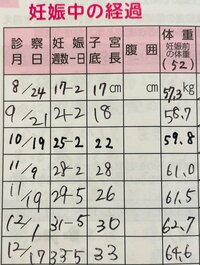 妊娠中の経過
診察月日 妊娠週数-日 子宮底長 腹囲 体重 妊娠前の体重 (52)
8/24 17-2 17cm cm 57.3kg
9/21 21-2 18 58.7
10/19 25-2 22 59.8
11/9 28-2 28 61.0
11/19 29-5 26 61.5
12/1 31-5 30 62.7
12/17 33-5 33 64.6